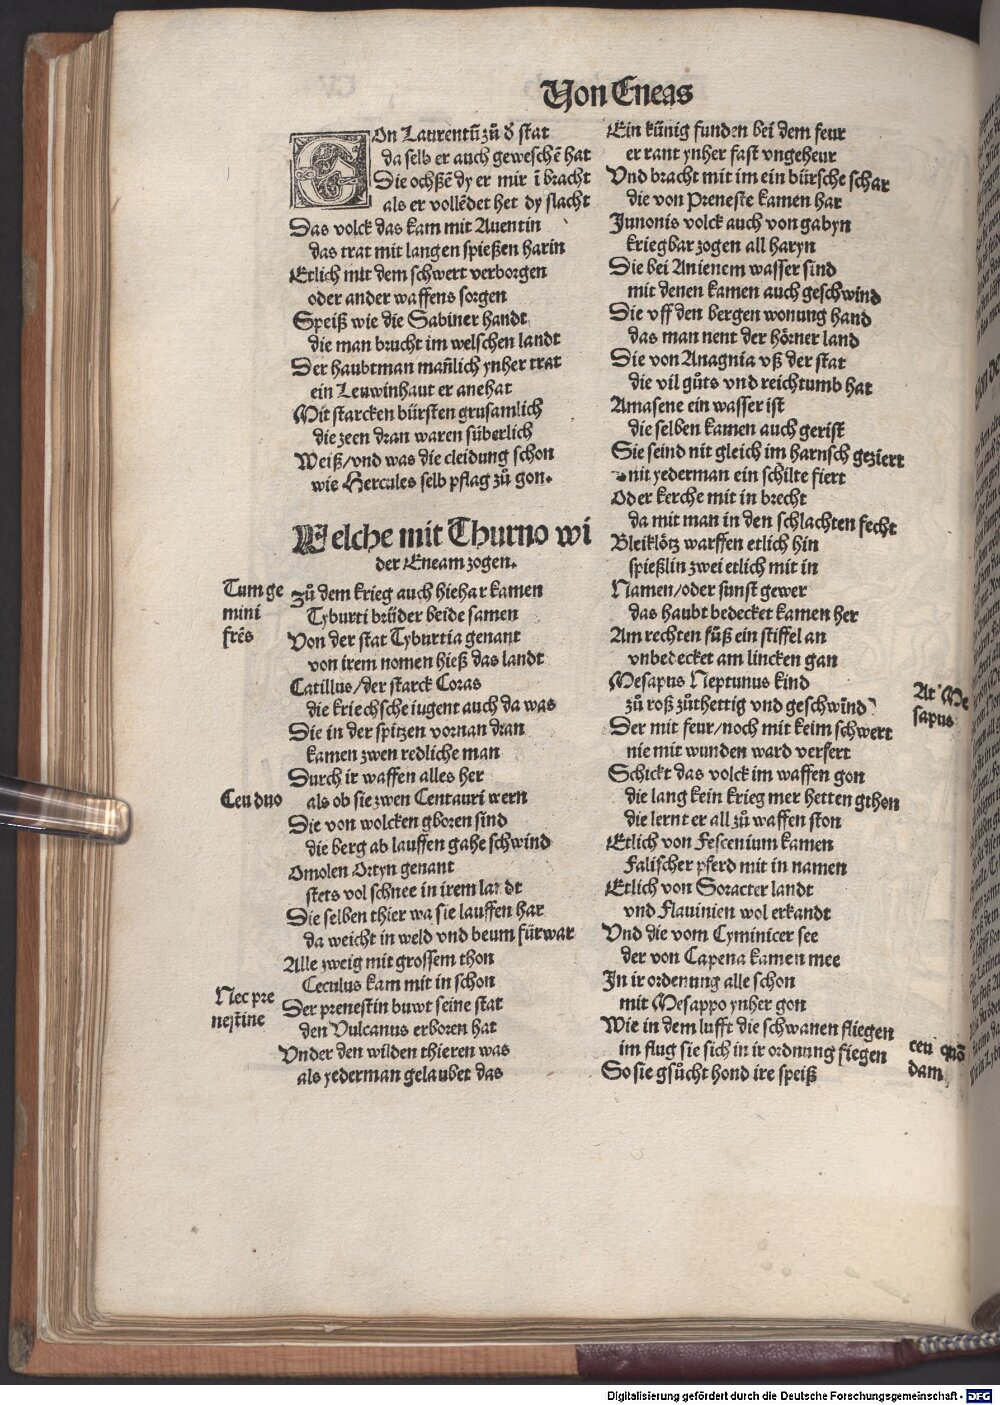 Von Eneas
Gon Laurentū zů ð stat
da selb er auch geweschē hat
Die ochßē dy er mir ī bracht
als er vollēdet het dy slacht
Das volck das kam mit Auentin
das trat mit langen spießen harin
Etlich mit dem schwert verborgen
oder ander waffens sorgen
Speiß wie die Sabiner handt
die man brucht im welschen landt
Der haubtman mañlich ynher trat
ein Leuwinhaut er anehat
Mit starcken bürsten grusamlich
die zeen dran waren süberlich
Weiß/vnd was die cleidung schon
wie Hercules selb pflag zů gon.
Welche mit Thurno wi
der Eneam zogen.
Tum ge
mini
frēs
Zů dem krieg auch hiehar kamen
Tyburti brüder beide samen
Von der stat Tyburtia genant
von irem nomen hieß das landt
Catillus/der starck Coras
die kriechsche iugent auch da was
Die in der spitzen vornan dran
kamen zwen redliche man
Durch ir waffen alles her
Ceu duo
als ob sie zwen Centauri wern
Die von wolcken gboren sind
die berg ab lauffen gahe schwind
Omolen Ortyn genant
stets vol schnee in irem landt
Die selben thier wa sie lauffen har
da weicht in weld vnd beum fürwar
Alle zweig mit grossem thon
Ceculus kam mit in schon
Nec pre
nestine
Der prenestin buwt seine stat
den Vulcanus erboren hat
Vnder den wilden thieren was
als yederman gelaubet das
Ein künig funden bei dem feur
er rant ynher fast vngeheur
Vnd bracht mit im ein bürsche schar
die von Preneste kamen har
Junonis volck auch von gabyn
kriegbar zogen all haryn
Die bei Anienem wasser sind
mit denen kamen auch geschwind
Die vff den bergen wonung hand
das man nent der hörner land
Die von Anagnia vß der stat
die vil gůts vnd reichtumb hat
Amasene ein wasser ist
die selben kamen auch gerist
Sie seind nit gleich im harnsch geziert
nit yederman ein schilte fiert
Oder kerche mit in brecht
da mit man in den schlachten fecht
Bleiklötz warffen etlich hin
spießlin zwei etlich mit in
Namen/oder sunst gewer
das haubt bedecket kamen her
Am rechten fůß ein stiffel an
vnbedecket am lincken gan
Mesapus Neptunus kind
At Me
sapus
zů roß zůthettig vnd geschwind
Der mit feur/noch mit keim schwert
nie mit wunden ward versert
Schickt das volck im waffen gon
die lang kein krieg mer hetten gthon
die lernt er all zů waffen ston
Etlich von Fescenium kamen
Falischer pferd mit in namen
Etlich von Soracter landt
vnd Flauinien wol erkandt
Vnd die vom Cyminicer see
der von Capena kamen mee
In ir ordenung alle schon
mit Mesappo ynher gon
Wie in dem lufft die schwanen fliegen
im flug sie sich in ir ordnung fiegen
ceu quō
dam
So sie gsůcht hond ire speiß
Digitalisierung gefördert durch die Deutsche Forschungsgemeinschaft - DFG